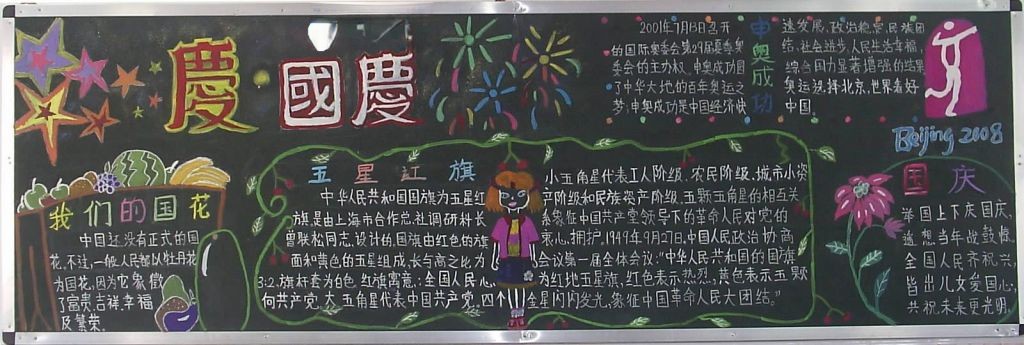 慶
國
慶
2001年7月13日召开
的国际奥委会第29届夏季奥
委会的主办权,申奥成功圆
了中华大地的百年奥运之
梦;申奥成功是中国经济快
申奥成功
速发展,政治稳定,民族团
结,社会进步,人民生活幸福,
综合国力显著增强的结果
奥运选择北京,世界看好
中国.
Beijing 2008
我们的国花
中国还没有正式的国
花.不过,一般人民都以牡丹花
为国花,因为它象徵
了富贵.吉祥.幸福
及繁荣.
五星红旗
中华人民共和国国旗为五星红
旗,是由上海市合作总社调研科长
曾联松同志,设计的,国旗由红色的旗
面和黄色的五星组成,长与高之比为
3:2.旗杆套为白色,红旗寓意:全国人民心
向共产党.大五角星代表中国共产党.四个
小五角星代表工人阶级.农民阶级.城市小资
产阶级和民族资产阶级.五颗五角星的相互关
系象征中国共产党领导下的革命人民对党的
衷心,拥护.1949年9月27日.中国人民政治协商
会议第一届全体会议:“中华人民共和国的国旗
为红地五星旗,红色表示热烈,黄色表示五颗
金星闪闪发光,象征中国革命人民大团结.”
国庆
举国上下庆国庆,
遥想当年战鼓惊.
全国人民齐祝兴,
皆出儿女爱国心,
共祝未来更光明.